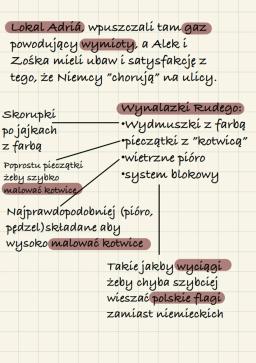 Lokal Adriâ, wpuszczali tam gaz
powodujący wymioty, a Alek i
Zośka mieli ubaw i satysfakcję z
tego, że Niemcy "chorują" na ulicy.
Wynalazki Rudego:
•Wydmuszki z farbą
•pieczątki z "kotwicą"
•wietrzne pióro
•system blokowy
Skorupki
po jajkach
z farbą
Poprostu pieczątki
żeby szybko
malować kotwice
Najprawdopodobniej (pióro,
pędzel) składane aby
wysoko malować kotwice
Takie jakby wyciągi
żeby chyba szybciej
wieszać polskie flagi
zamiast niemieckich